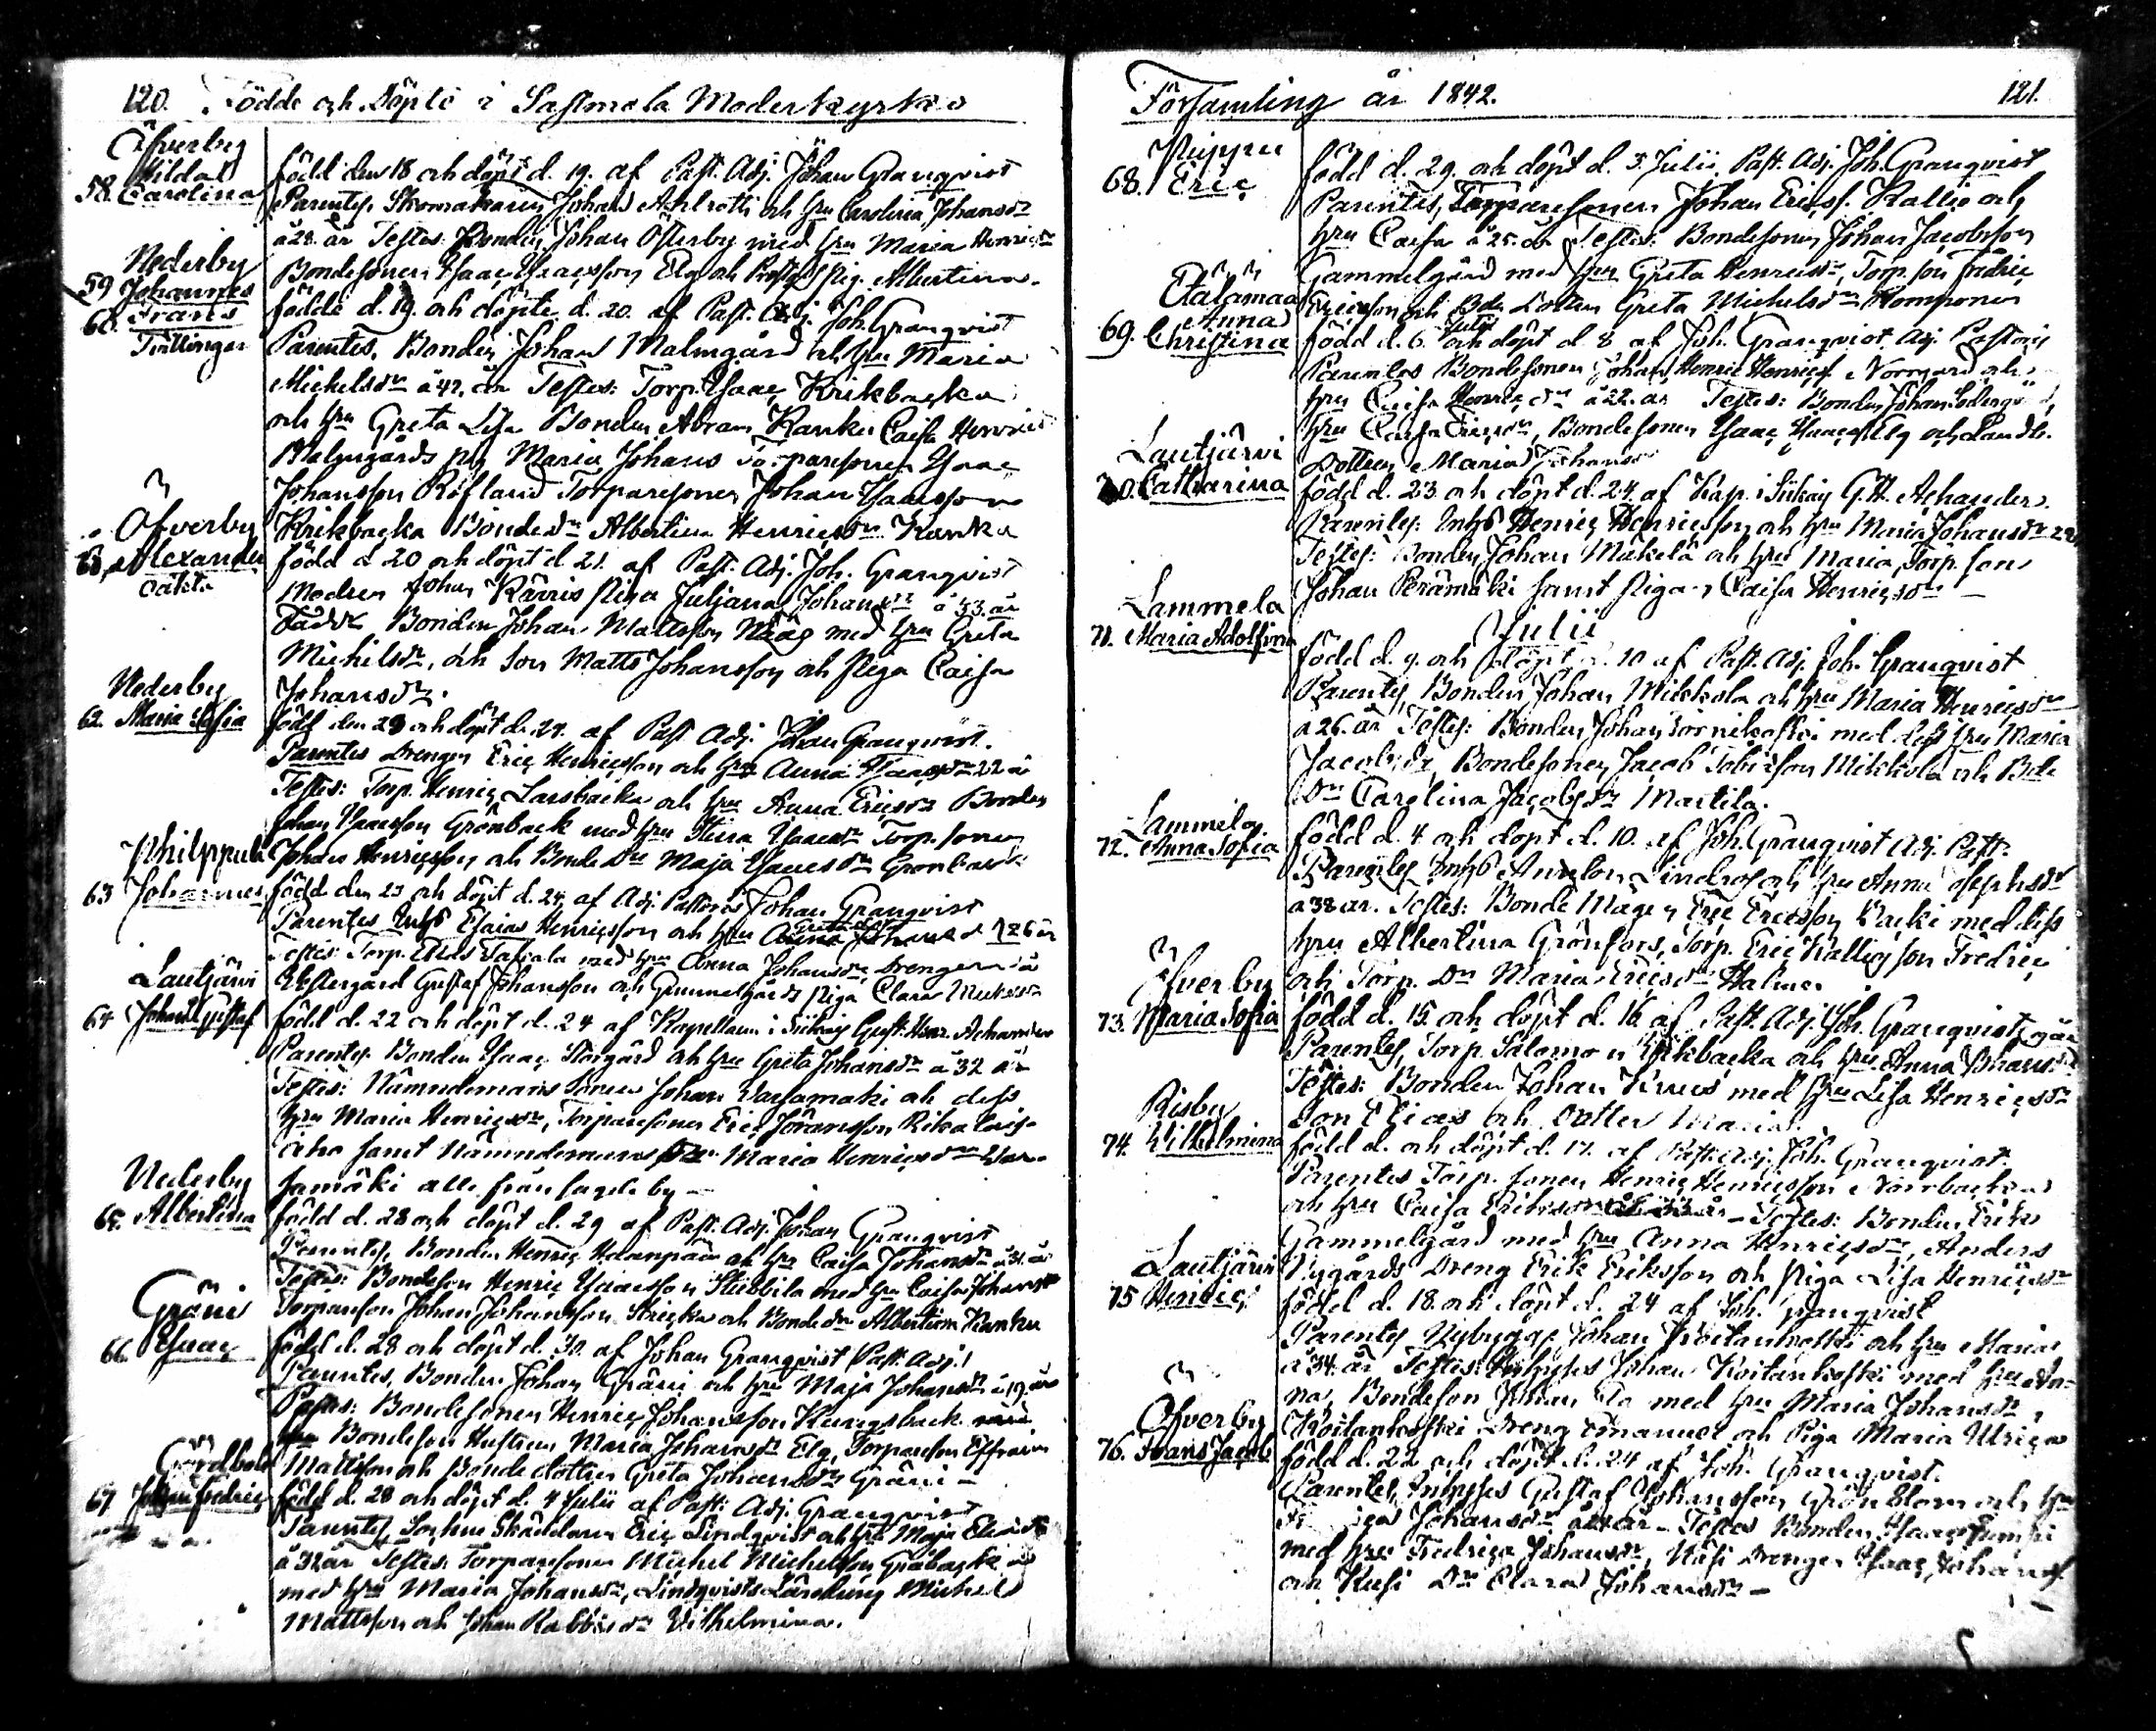 120. Födde och Döpte i Sastmola Moderkyrko
Öfverby
Hilda
58. Carolina
född den 18 och döpt d. 19. af Past. Adj. Johan Granqvist
Parentes. Skomakaren Johan Ahlroth och hru Carolina Johansdr
à 28 år Testes: Bonden Johan Österby med hru Maria Henricsdr
Bondesonen Isaac Isacsson Elg och pig. Albertina.
Nederby
59 Johannes
60. Frans
Tvillingar
födde d. 19. och döpte d. 20. af Past. Adj. Joh. Granqvist
Parentes. Bonden Johan Malmgård och hru Maria
Michelsdr à 42. år Testes: Torp. Isaac Krikbacka
och hru Greta Lisa Bonden Abram Kanka Caisa Henrics
Malmgårds pig Maria Johans Torparesonen Isaac
Johansson Röfland Torparesonen Johan Isacsson
Krikbacka Bondedr Albertina Henricsdr Kanka
Öfverby
Alexander
oäkta
född d 20 och döpt d 21. af Past. Adj. Joh. Granqvist
Modren Johan pigan Juliana Johansdr à 33. år
Faddr. Bonden Johan Mattsson med hru Greta
Michelsdr, och Son Matts Johansson och piga Caisa
Johansdr.
Nederby
62. Maria Sofia
född den 28 och döpt d. 29. af Past. Adj. Johan Granqvist.
Parentes Drengen Eric Henricsson och hru Anna Isacsdr 22 år
Testes: Torp. Henric Larsbacka och hru Anna Ericsdr Bonden
Johan Isacsson Grönback med hru Stina Isacsdr Torp. sonen
Johan Henricsson och Bondedr Maja Isacsdr Grönback
Philppula
63 Johannes
född den 23 och döpt d. 24 af Adj. Pastoris Johan Granqvist
Parentes Inhs Esaias Henricsson och hru Johansdr à 26 år
Testes: Torp. Elias Tastula med hru Anna Johansdr, Drengen
Gustaf Johansson och Gammelgårds piga Clara
Lautjärvi
64 Johan Gustaf
född d. 22 och döpt d. 24 af Kapellan i Siikais Gust. Achander
Parentes. Bonden Isaac Storgård och hru Greta Johansdr à 32 år
Testes: Nämndemans sonen Johan Varsamäki och dess
hru Maria Henricsdr, Torparesonen Eric Jöransson
samt Nämndemans Dr. Maria Henricsdr Var-
samäki alla från sagde by —
Nederby
65. Albertina
född d. 28 och döpt d. 29 af Past. Adj. Johan Granqvist
Parentes, Bonden Henric Haanpää och hru Caisa Johansdr à 31. år
Testes: Bondeson Henric Isacsson med hru Caisa Johansdr
Torpareson Johan Johansson och Bonde dr Albertina Kanka
Gräni
66. Isaac
född d. 28 och döpt d. 30. af Johan Granqvist Past. Adj.
Parentes, Bonden Johan Gräni och hru Maja Johansdr à 19 år
Testes: Bondesonen Henric Johansson Kungsback
Bondeson Hustrun Maria Johansdr Elg, Torpareson Effraim
Mattsson och Bonde dottren Greta Johansdr Gräni —
67 Johan Fredric
född d. 28 och döpt d. 4 Julii af Past. Adj. Granqvist
Parentes Sockne Skräddaren Eric Lindqvist och hru Maja
à 32 år Testes. Torparesonen Michel Michelsson Gråbacka
med hru Maria Johansdr, Lindqvists Lärodräng Michel
Mattsson och Johan dr Vilhelmina.
Församling år 1842. 121.
68. Eric
född d. 29. och döpt d. 3 Julii. Past. Adj. Joh. Granqvist
Parentes, Torparesonen Johan Ericss. Kallio och
hru Caisa à 25. år Testes: Bondesonen Johan Jacobsson
Gammelgård med hru Greta Henricsdr, Torp. son Fredric
Ericsson och Bde Dottren Greta Michelsdr
Etälämaa
Anna
69. Christina
född d. 6. Julii och döpt d 8 af Joh. Granqvist, Adj. Pastoris
Parentes Bondesonen Johan Henric Henricss Norrgård och
hru Caisa Henricsdr à 22. år Testes: Bonden Johan
hru Caisa Ericsdr, Bondesonen Isaac Elg och Landb.
Dottren Maria Johans
Lautjärvi
70. Catharina
född d. 23 och döpt d. 24. af Kap. i Siikais G. H. Achander.
Parentes: Inhs Henric Henricsson och hru Maria Johansdr 29
Testes: Bonden Johan Mäkelä och hru Maria, Torp. son
Johan Perämäki samt pigan Caisa Henricsdr —
Julii
Lammela
71. Maria Adolfina
född d. 9. och döpt d. 10 af Past. Adj. Joh. Granqvist
Parentes, Bonden Johan Mikkola och hru Maria Henricsdr
à 26. år Testes: Bonden Johan med dess hru Maria
Jacobsdr, Bondesonen Jacob Tobiasson Mikkola och Bde
Dr Carolina Jacobsdr Martila.
Lammela
72. Anna Sofia
född d. 4 och döpt d. 10. af Joh. Granqvist Adj. Past.
Parentes Inhs Anders Lindros och hru Anna Josephsdr
à 38 år. Testes: Bonde Mågen Eric Ericsson Backi med dess
hru Albertina Grönfors, Torp. Eric Kallio son Fredric
och Torp. Dr Maria Ericsdr Halme.
Öfverby
73. Maria Sofia
född d. 15. och döpt d. 16. af Past. Adj. Joh. Granqvist
Parentes, Torp. Salomon och hru Anna Johansdr
Testes: Bonden Johan Knus med hru Lisa Henricsdr
Son Elias och dotter Maria.
Risby
74. Vilhelmina
född d. och döpt d. 17. af Past. Adj. Joh. Granqvist.
Parentes Torp. sonen Henric Henricsson Norrbacka
och hru Caisa Eriksdr à 33 år — Testes: Bonden Erik
Gammelgård med hru Anna Henricsdr, Anders
Nygårds Dreng Erik Eriksson och piga Lisa Henricsdr
Lautjärvi
75 Henric
född d. 18. och döpt d. 24 af Joh. Granqvist
Parentes Nybygg. Johan Koitankoski och hru Maria
à 34. år Testes: Inhyses Johan Koitankoski med hru An-
na, Bondeson Johan med hru Maria Johansdr,
Koitankoski Dreng Emanuel och Piga Maria Ulrica
Öfverby
76. Frans Jacob
född d. 22 och döpt d. 24 af Joh. Granqvist.
Parentes, Inhyses Gustaf Johansson Grönblom och hru
Johansdr — Testes Bonden Isaac
med hru Fredrica Johansdr, Drengen Isaac Johanss
och Kusi Dr Clara Johansdr —